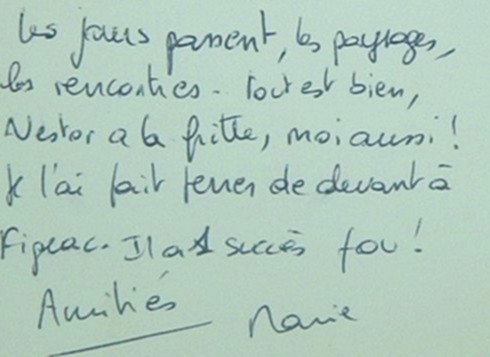 Les jours passent, les paysages,
les rencontres. Tout est bien,
Nestor a la fritte, moi aussi !
Je l'ai fait ferrer de devant à
Figeac. Il a 1 succès fou !
Amitiés Marie